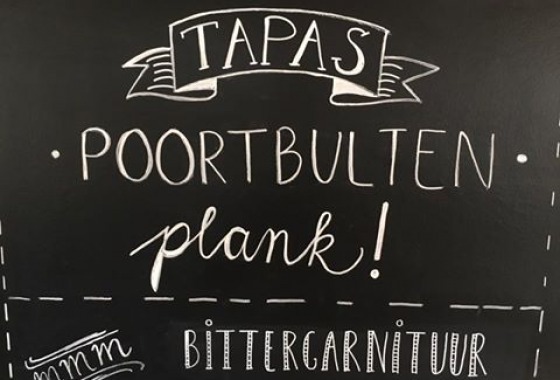 TAPAS
• POORTBULTEN •
plank!
mmm
BITTERGARNITUUR